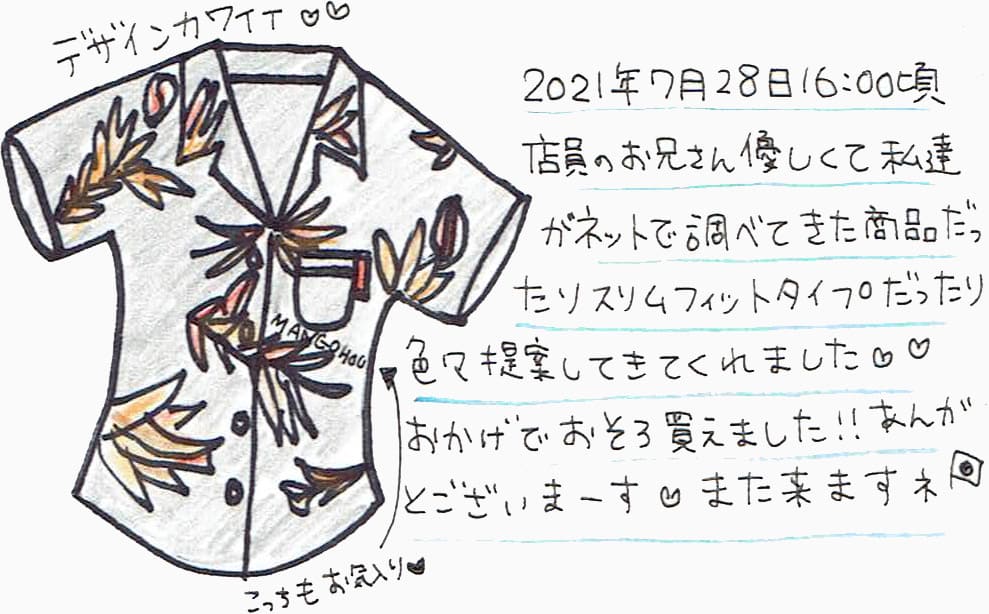 デザインカワイイ♡♡
2021年7月28日16:00頃
店員のお兄さん優しくて私達
がネットで調べてきた商品だっ
たりスリムフィットタイプだったり
色々提案してきてくれました♡♡
おかげでおそろ買えました!!あんが
とございまーす♡また来ますネ
MANGOHOU
こっちもお気入り♥